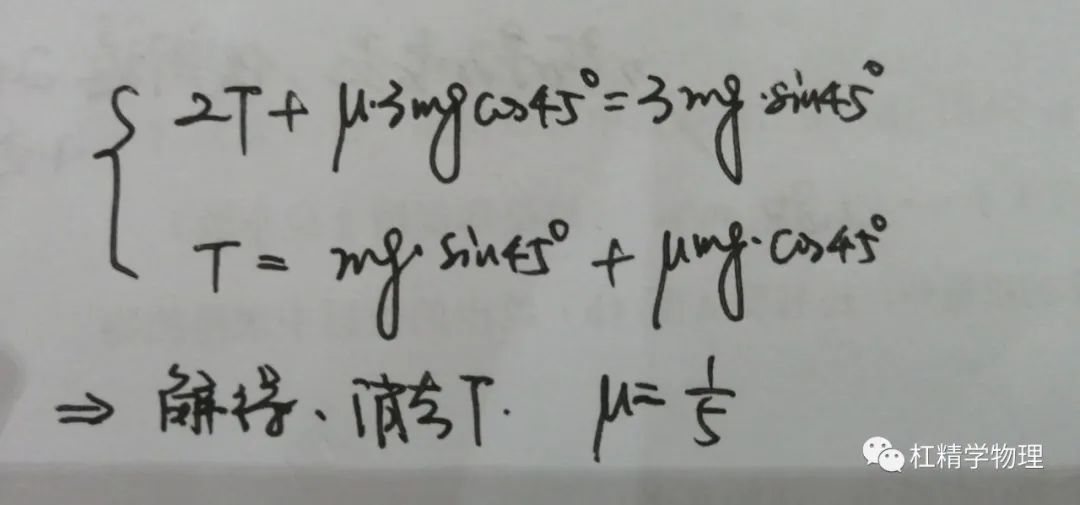 2T + μ·3mgcos45°=3mg·sin45°
T = mg·sin45° + μmg·cos45°
⇒ 解得、消去T. μ=1/5
杠精学物理